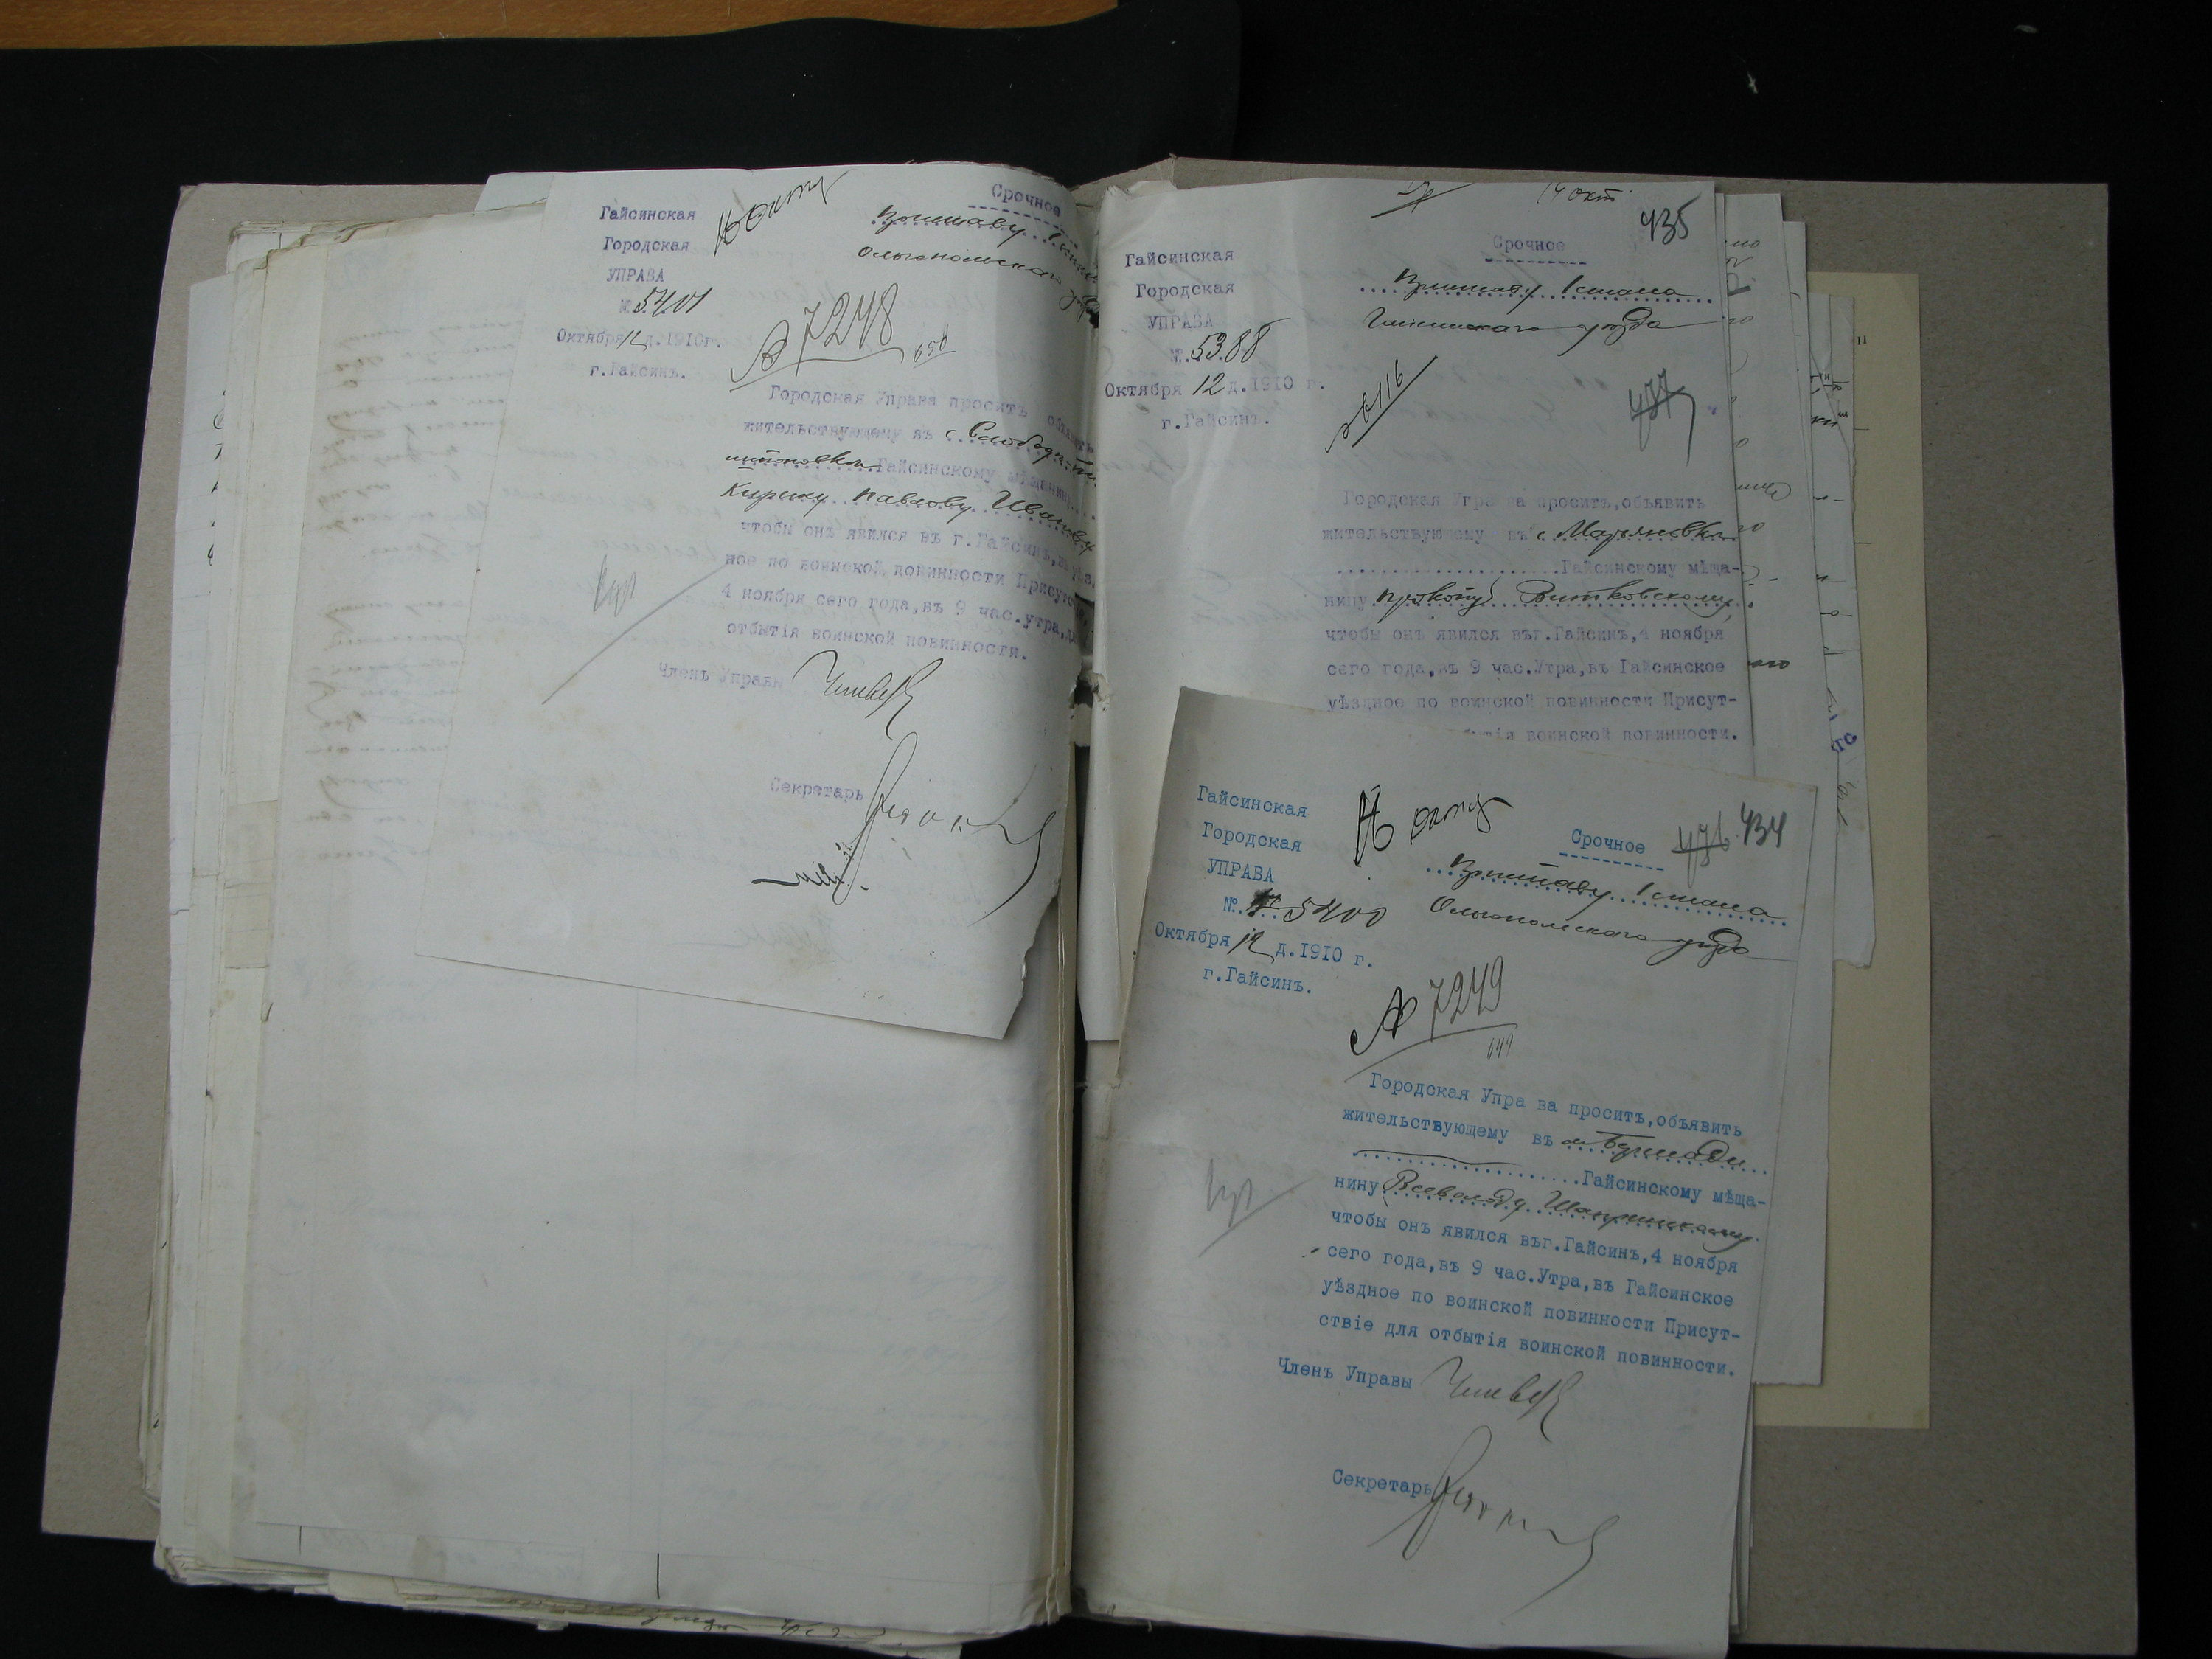 Срочное
Гайсинская
Городская
УПРАВА
№ 5401
Октября 12 д. 1910 г.
г. Гайсинъ.
Приставу 1 стана
Ольгопольскаго
7248
650
Городская Управа проситъ объявить
жительствующему въ с. Слободи-
Гайсинскому мѣщанину
Кирику Павлову Иванову
чтобы онъ явился въ г. Гайсинъ, въ
ное по воинской повинности Присут
4 ноября сего года, въ 9 час. утра, для
отбытія воинской повинности.
Членъ Управы
Секретарь
14 окт
435
Срочное
Гайсинская
Городская
УПРАВА
№. 5388
Октября 12 д. 1910 г.
г. Гайсинъ.
Приставу 1 стана
Гайсинскаго уѣзда
437
Городская Управа проситъ, объявить
жительствующему въ с. Марьяновкѣ
Гайсинскому мѣща-
нину Прокопу Витковскому,
чтобы онъ явился въг. Гайсинъ, 4 ноября
сего года, въ 9 час. Утра, въ Гайсинское
уѣздное по воинской повинности Присут-
бытія воинской повинности.
Срочное 434
Гайсинская
Городская
УПРАВА
№. 5400
Октября 12 д. 1910 г.
г. Гайсинъ.
Приставу 1 стана
Ольгопольскаго уѣзда
7249
649
Городская Упра ва проситъ, объявить
жительствующему въ м. Бершади
Гайсинскому мѣща-
нину Всеволоду
чтобы онъ явился въг. Гайсинъ, 4 ноября
сего года, въ 9 час. Утра, въ Гайсинское
уѣздное по воинской повинности Присут-
ствіе для отбытія воинской повинности.
Членъ Управы
Секретарь